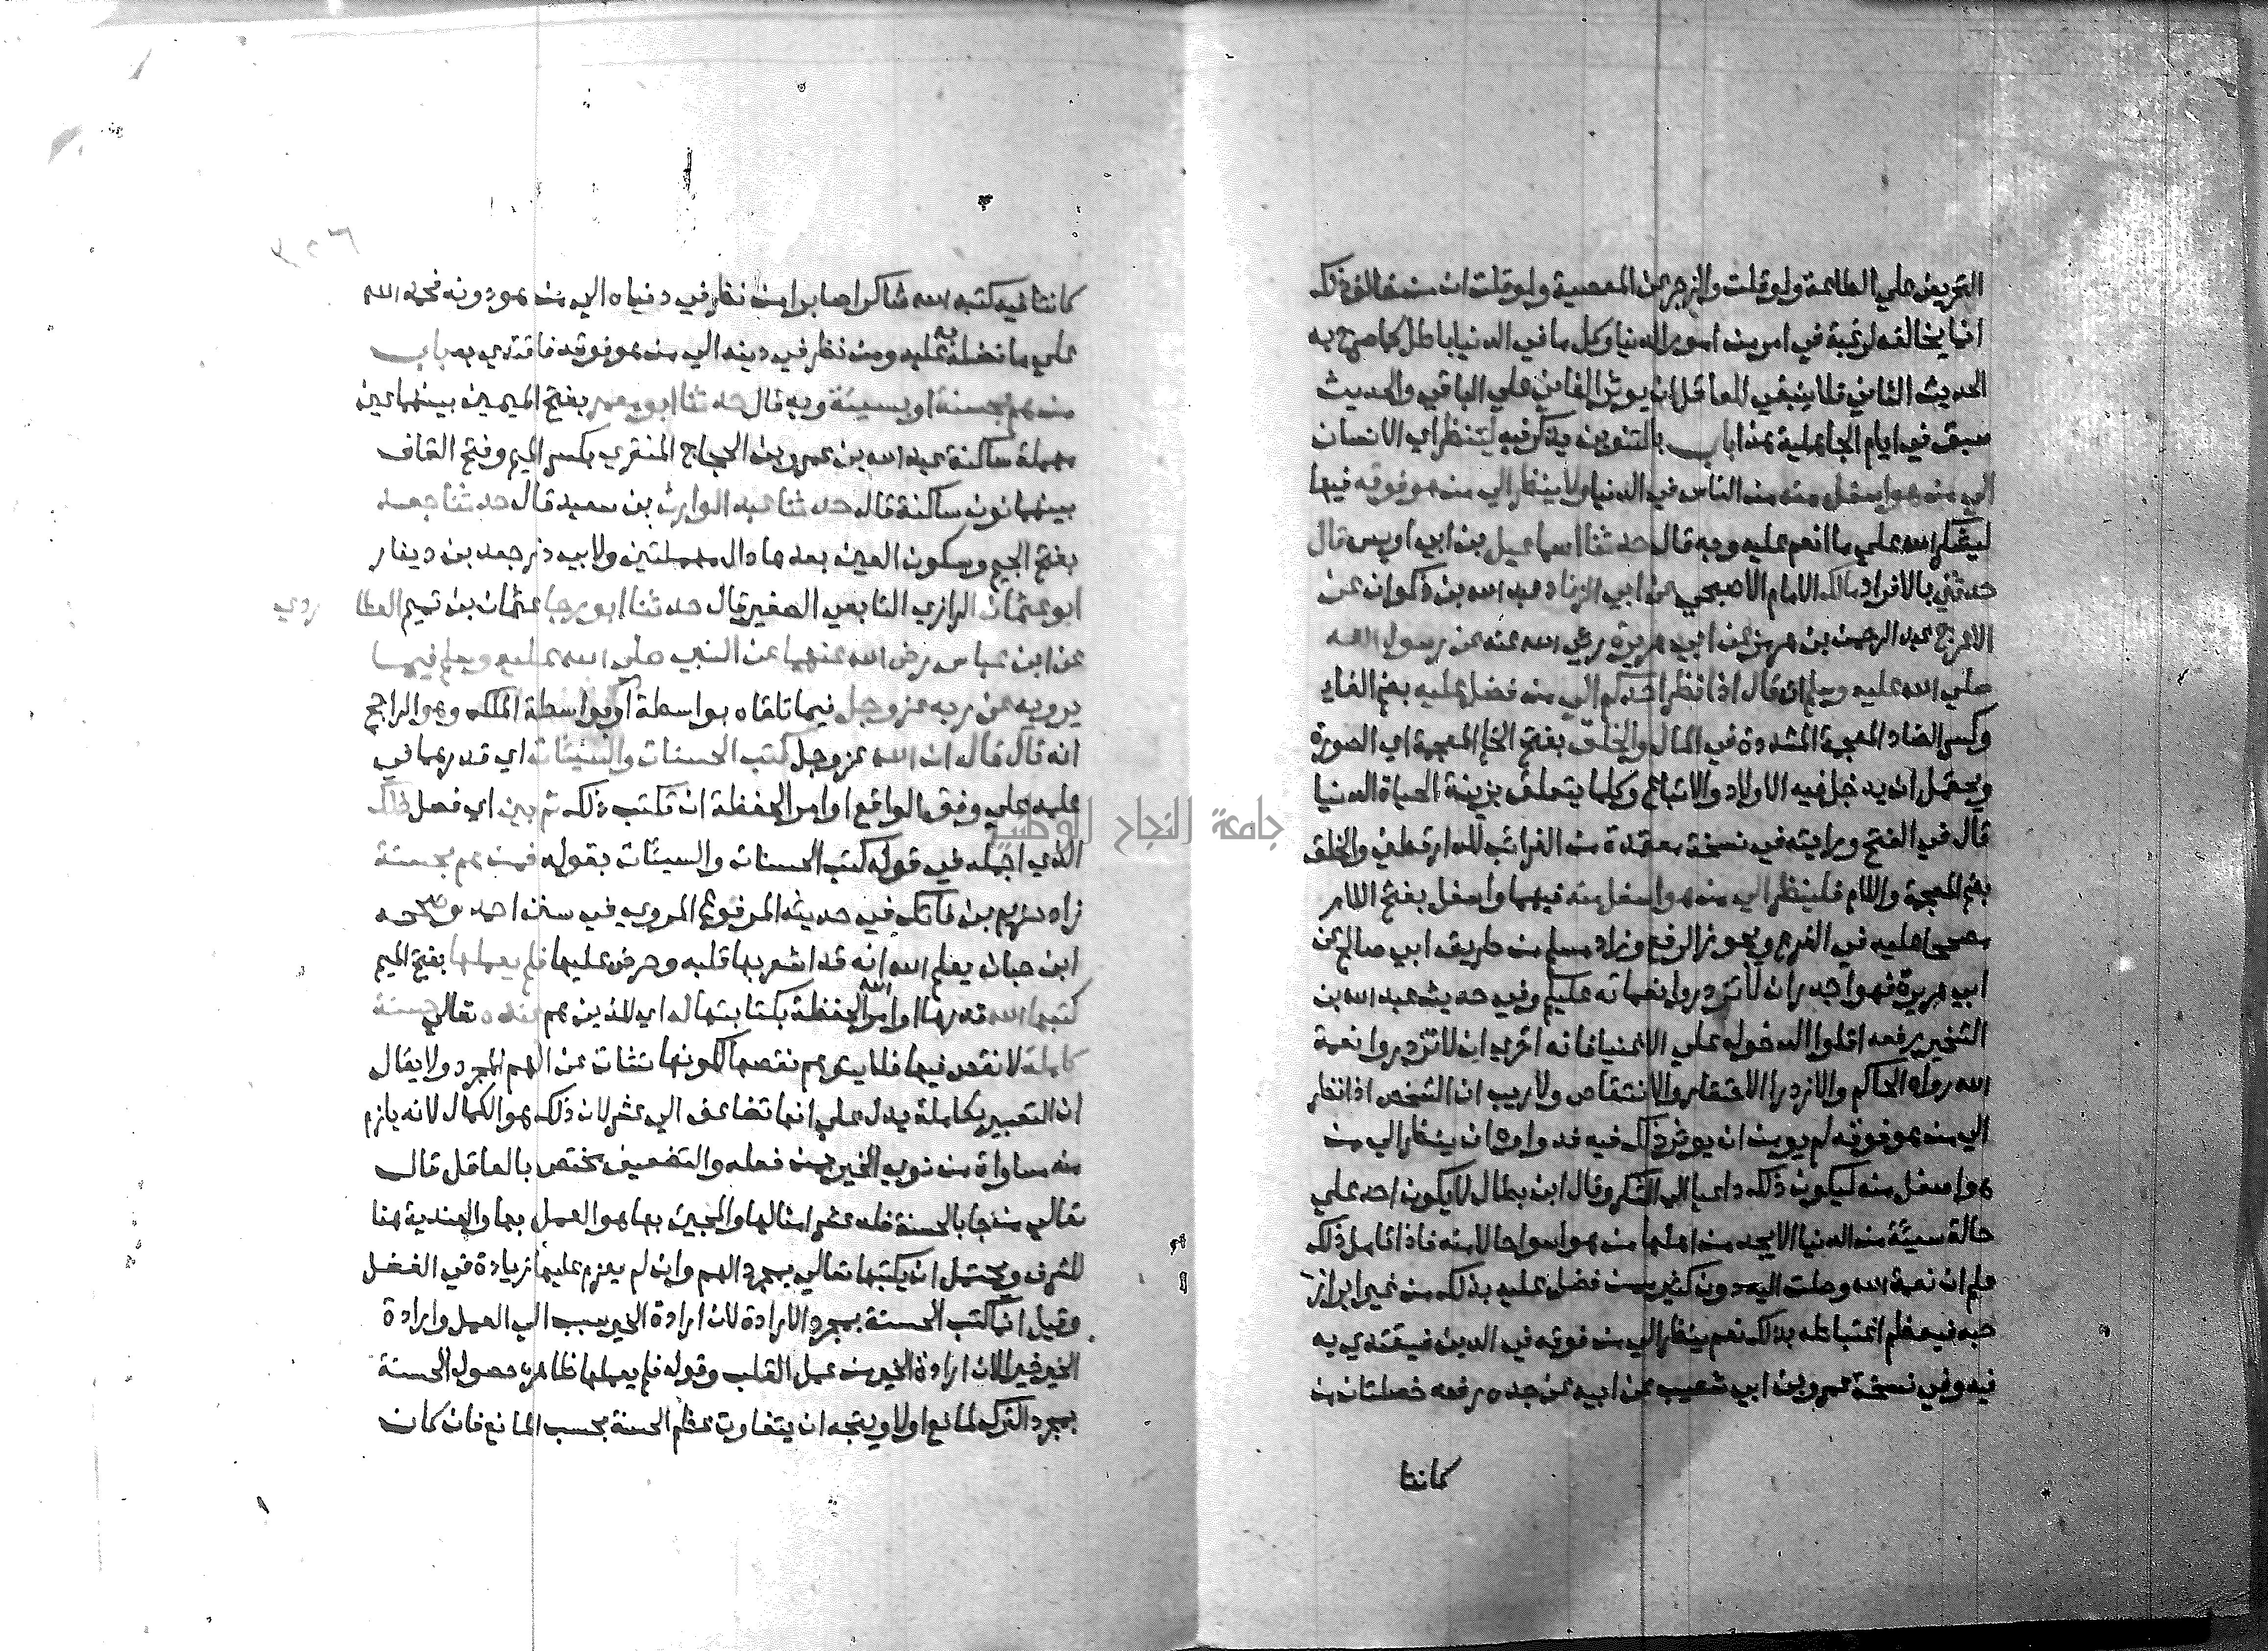 التحريض علي الطاعة ولو قلت والزجر عن المعصية ولو قلت ان من خالف ذلك
انما يخالفه لرغبة في امر من امور الدنيا وكل ما في الدنيا باطل كما صرح به
الحديث الثاني فلا ينبغي للعاقل ان يوثر الفاني علي الباقي والحديث
سبق في ايام الجاهلية هذا باب بالتنوين يذكر فيه لينظر اي الانسان
الي من هو اسفل منه من الناس في الدنيا ولا ينظر الي من هو فوقه فيها
ليشكر الله علي ما انعم عليه وبه قال حدثنا اسماعيل بن ابي اويس قال
حدثني بالافراد مالك الامام الاصبحي عن ابي الزناد عبد الله بن ذكوان عن
الاعرج عبد الرحمن بن هرمز عن ابي هريرة رضي الله عنه عن رسول الله
صلي الله عليه وسلم انه قال اذا نظر احدكم الي من فضل عليه بضم الفاء
وكسر الضاد المعجمة المشددة في المال والخلق بفتح الخا المعجمة اي الصورة
ويحتمل ان يدخل فيه الاولاد والاتباع وكلما يتعلق بزينة الحياة الدنيا
قال في الفتح ورايته في نسخة معتمدة من الغرائب للدارقطني والخلق
بضم المعجمة واللام فلينظر الي من هو اسفل منه فيهما واسفل بفتح اللام
مصححا عليه في الفرع ويجوز الرفع وزاد مسلم من طريق ابي صالح عن
ابي هريرة فهو اجدر ان لا تزدروا نعمة الله عليكم وفي حديث عبد الله بن
الشخير رفعه اقلوا الدخول علي الاغنيا فانه احري ان لا تزدروا نعمة
الله رواه الحاكم والازدرا الاحتقار والانتقاص ولا ريب ان الشخص اذا نظر
الي من هو فوقه لم يومن ان يوثر ذلك فيه فدواوه ان ينظر الي من
هو اسفل منه ليكون ذلك داعيا الي الشكر وقال ابن بطال لا يكون احد علي
حالة سيئة من الدنيا الا يجد من اهلها من هو اسوا حالا منه فاذا تامل ذلك
علم ان نعمة الله وصلت اليه دون كثير ممن فضل عليه بذلك من غير
فيعظم اغتباطه بذلك نعم ينظر الي من فوقه في الدين فيقتدي به
فيه وفي نسخة عمرو بن ابي شعيب عن ابيه عن جده رفعه خصلتان من
كانتا
كانتا فيه كتبه الله شاكرا صابرا من نظر في دنياه الي من هو دونه فحمد الله
علي ما فضله به عليه ومن نظر في دينه الي من هو فوقه فاقتدي به باب
من هم بحسنة او بسيئة وبه قال حدثنا ابو معمر بفتح الميمين بينهما عين
مهملة ساكنة عبد الله بن عمرو بن الحجاج المنقري بكسر الميم وفتح القاف
بينهما نون ساكنة قال حدثنا عبد الوارث بن سعيد قال حدثنا جعد
بفتح الجيم وسكون العين بعدها دال مهملتين ولابي ذر جعد بن دينار
ابو عثمان الرازي التابعي الصغير قال حدثنا ابو رجا عثمان بن تميم العطا ردي
عن ابن عباس رضي الله عنهما عن النبي صلي الله عليه وسلم فيما
يرويه عن ربه عز وجل فيما تلقاه بواسطة او بواسطة الملك وهو الراجح
انه قال قال ان الله عز وجل كتب الحسنات والسيئات اي قدرهما في
علمه علي وفق الواقع او امر الحفظة ان تكتب ذلك ثم بين اي فصل ذلك
الذي اجمله في قوله كتب الحسنات والسيئات بقوله فمن هم بحسنة
زاد خزيم بن فاتك في حديثه المرفوع المروي في سنن احمد وصححه
ابن حبان يعلم الله انه قد اشعر بها قلبه وحرص عليها فلم يعملها بفتح الميم
كتبها الله قدرها او امر الله الحفظة بكتابتها له اي للذين هم عنده تعالي حسنة
كاملة لا نقص فيها فلا يتوهم نقصها لكونها نشات عن الهم المجرد ولا يقال
ان التعبير بكاملة يدل علي انها تضاعف الي عشر لان ذلك هو الكمال لانه يلزم
منه مساواة من نوي الخير بمن فعله والتضعيف مختص بالعاقل قال
تعالي من جا بالحسنة فله عشر امثالها والمجيئ بها هو العمل بها والعندية هنا
للشرف ويحتمل ان يكتبها تعالي بمجرد الهم وان لم يعزم عليها زيادة في الفضل
وقيل انما كتب الحسنة بمجرد الارادة لان ارادة الخير سبب الي العمل وارادة
الخير خير لان ارادة الخير من عمل القلب وقوله فلم يعملها ظاهره حصول الحسنة
بمجرد الترك لمانع اولا ويتجه ان يتفاوت عظم الحسنة بحسب المانع فان كان
جامعة النجاح الوطنية